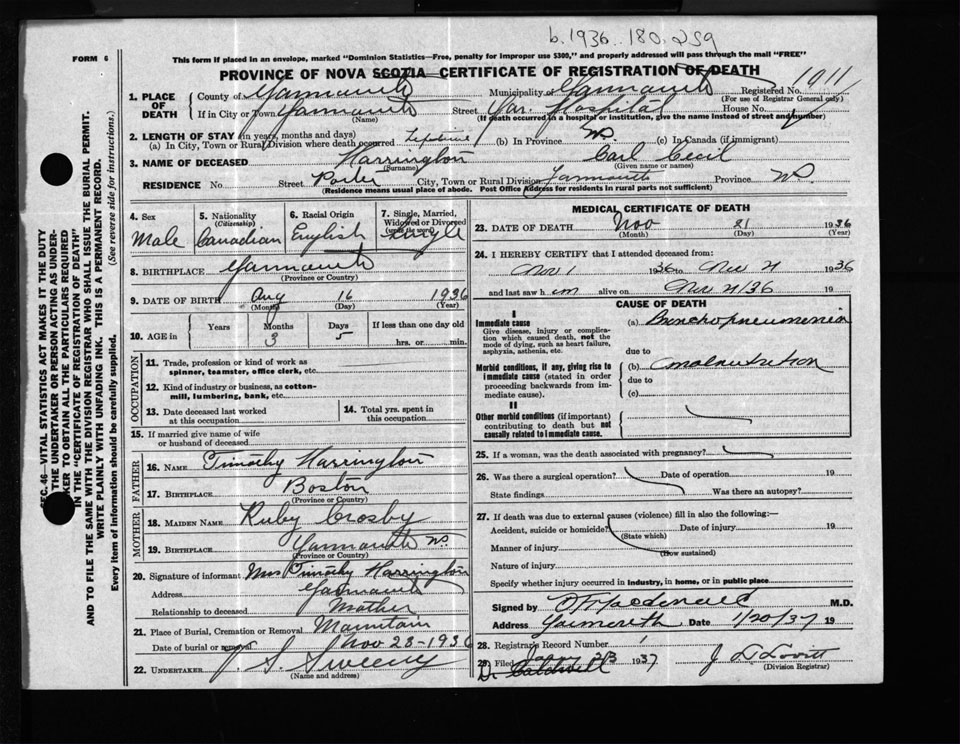 b. 1936. 180. 259
FORM 6
This form if placed in an envelope, marked "Dominion Statistics—Free, penalty for improper use $300," and properly addressed will pass through the mail "FREE"
PROVINCE OF NOVA SCOTIA—CERTIFICATE OF REGISTRATION OF DEATH
1011
1. PLACE OF DEATH
County of Yarmouth Municipality of Yarmouth Registered No.
(For use of Registrar General only)
If in City or Town Yarmouth Street Yar. Hospital House No.
(Name) (If death occurred in a hospital or institution, give the name instead of street and number)
2. LENGTH OF STAY (in years, months and days)
(a) In City, Town or Rural Division where death occurred Lifetime (b) In Province (c) In Canada (if immigrant)
3. NAME OF DECEASED Harrington Carl Cecil
(Surname) (Given name or names)
RESIDENCE No. Street Porter City, Town or Rural Division Yarmouth Province NS
(Residence means usual place of abode. Post Office Address for residents in rural parts not sufficient)
4. Sex Male
5. Nationality (Citizenship) Canadian
6. Racial Origin English
7. Single, Married, Widowed or Divorced (write the word) Single
8. BIRTHPLACE Yarmouth
(Province or Country)
9. DATE OF BIRTH Aug 16 1936
(Month) (Day) (Year)
10. AGE in Years Months 3 Days 5 If less than one day old hrs. or min.
OCCUPATION
11. Trade, profession or kind of work as spinner, teamster, office clerk, etc.
12. Kind of industry or business, as cotton-mill, lumbering, bank, etc.
13. Date deceased last worked at this occupation
14. Total yrs. spent in this occupation
15. If married give name of wife or husband of deceased
FATHER
16. NAME Timothy Harrington
17. BIRTHPLACE Boston
(Province or Country)
MOTHER
18. MAIDEN NAME Ruby Crosby
19. BIRTHPLACE Yarmouth NS.
(Province or Country)
20. Signature of informant Mrs Timothy Harrington
Address Yarmouth
Relationship to deceased Mother
21. Place of Burial, Cremation or Removal Mountain
Date of burial or removal Nov 28-1936
22. UNDERTAKER V. S. Sweeny
(Name and address)
MEDICAL CERTIFICATE OF DEATH
23. DATE OF DEATH Nov 21 1936
(Month) (Day) (Year)
24. I HEREBY CERTIFY that I attended deceased from:
Nov 1 1936 to Nov 21 1936
and last saw h im alive on Nov 21/36 19
CAUSE OF DEATH
I
Immediate cause
Give disease, injury or complication which caused death, not the mode of dying, such as heart failure, asphyxia, asthenia, etc.
(a) Bronchopneumonia
due to
Morbid conditions, if any, giving rise to immediate cause (stated in order proceeding backwards from immediate cause).
(b) malnutrition
due to
(c)
II
Other morbid conditions (if important) contributing to death but not causally related to immediate cause.
25. If a woman, was the death associated with pregnancy?
26. Was there a surgical operation? Date of operation 19
State findings Was there an autopsy?
27. If death was due to external causes (violence) fill in also the following:—
Accident, suicide or homicide? Date of injury 19
(State which)
Manner of injury
(How sustained)
Nature of injury
Specify whether injury occurred in industry, in home, or in public place
Signed by M.D.
Address Yarmouth Date 1/20/37 19
28. Registrar's Record Number 1
29. Filed 1937
D. Caldwell
J D Lovitt
(Division Registrar)
SEC. 46—VITAL STATISTICS ACT MAKES IT THE DUTY OF THE UNDERTAKER OR PERSON ACTING AS UNDERTAKER TO OBTAIN ALL THE PARTICULARS REQUIRED IN THE "CERTIFICATE OF REGISTRATION OF DEATH"
AND TO FILE THE SAME WITH THE DIVISION REGISTRAR WHO SHALL ISSUE THE BURIAL PERMIT.
WRITE PLAINLY WITH UNFADING INK. THIS IS A PERMANENT RECORD.
Every item of information should be carefully supplied. (See reverse side for instructions.)